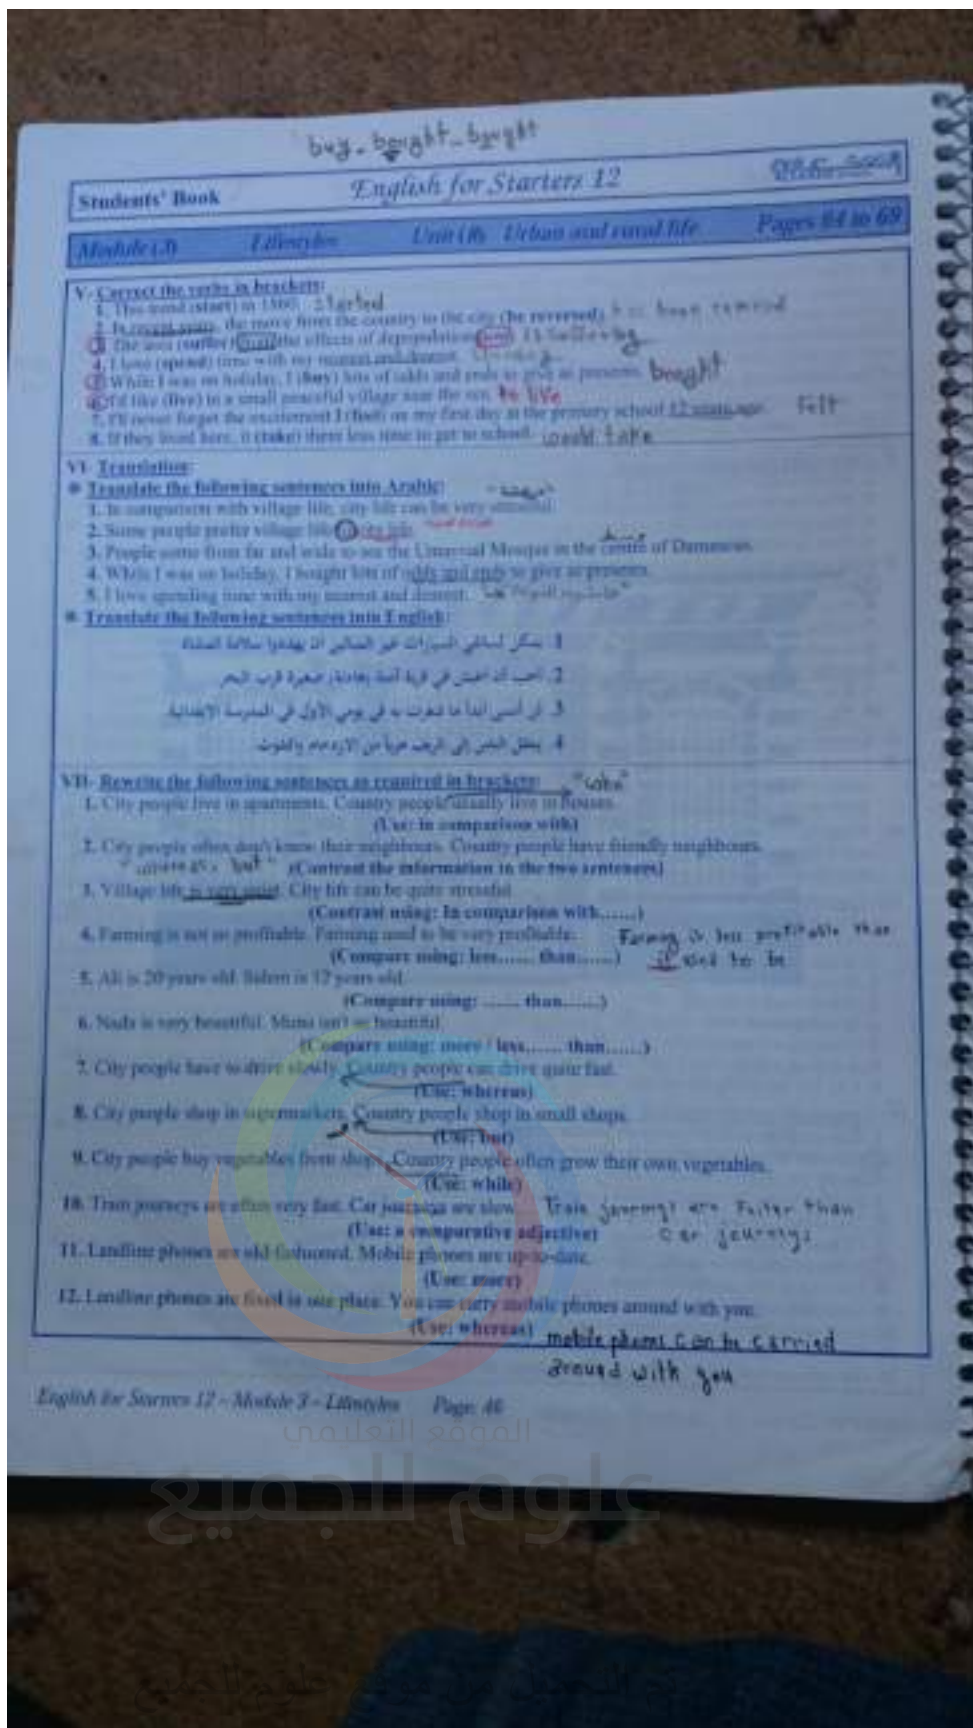 buy - bought - bought
Students' Book English for Starters 12
Module (3) Lifestyles Unit (8) Urban and rural life Pages 64 to 69
V- Correct the verbs in brackets:
1. This trend (start) in 1960. started
2. In recent years, the move from the country to the city (be reversed). has been
3. The area (suffer) from the effects of depopulation now. is suffering
4. I love (spend) time with my nearest and dearest.
5. While I was on holiday, I (buy) lots of odds and ends to give as presents. bought
6. I'd like (live) in a small peaceful village near the sea. to live
7. I'll never forget the excitement I (feel) on my first day at the primary school 12 years ago. Felt
8. If they lived here, it (take) them less time to get to school. would take
VI- Translation:
Translate the following sentences into Arabic:
1. In comparison with village life, city life can be very stressful.
2. Some people prefer village life to city life.
3. People come from far and wide to see the Umayyad Mosque in the centre of Damascus.
4. While I was on holiday, I bought lots of odds and ends to give as presents.
5. I love spending time with my nearest and dearest.
Translate the following sentences into English:
1. يمكن لسائقي السيارات غير الصالحين أن يهددوا سلامة المشاة
2. أحب أن أعيش في قرية آمنة صغيرة قرب البحر
3. لن أنسى أبداً ما شعرت به في يومي الأول في المدرسة الابتدائية
4. ينتقل الناس إلى الريف هرباً من الازدحام والتلوث
VII- Rewrite the following sentences as required in brackets:
1. City people live in apartments. Country people usually live in houses.
(Use: in comparison with)
2. City people often don't know their neighbours. Country people have friendly neighbours.
"whereas, but" (Contrast the information in the two sentences)
3. Village life is very quiet. City life can be quite stressful.
(Contrast using: In comparison with......)
4. Farming is not so profitable. Farming used to be very profitable. Farming is less profitable than
(Compare using: less...... than......) it used to be
5. Ali is 20 years old. Salem is 17 years old.
(Compare using: ...... than......)
6. Nada is very beautiful. Muna isn't so beautiful.
(Compare using: more / less...... than......)
7. City people have to drive slowly. Country people can drive quite fast.
(Use: whereas)
8. City people shop in supermarkets. Country people shop in small shops.
(Use: but)
9. City people buy vegetables from shops. Country people often grow their own vegetables.
(Use: while)
10. Train journeys are often very fast. Car journeys are slow. Train journeys are Faster than
(Use: a comparative adjective) car journeys
11. Landline phones are old-fashioned. Mobile phones are up-to-date.
(Use: more)
12. Landline phones are fixed in one place. You can carry mobile phones around with you.
(Use: whereas) mobile phones can be carried
around with you
English for Starters 12 – Module 3 – Lifestyles Page: 46
الموقع التعليمي
علوم للجميع